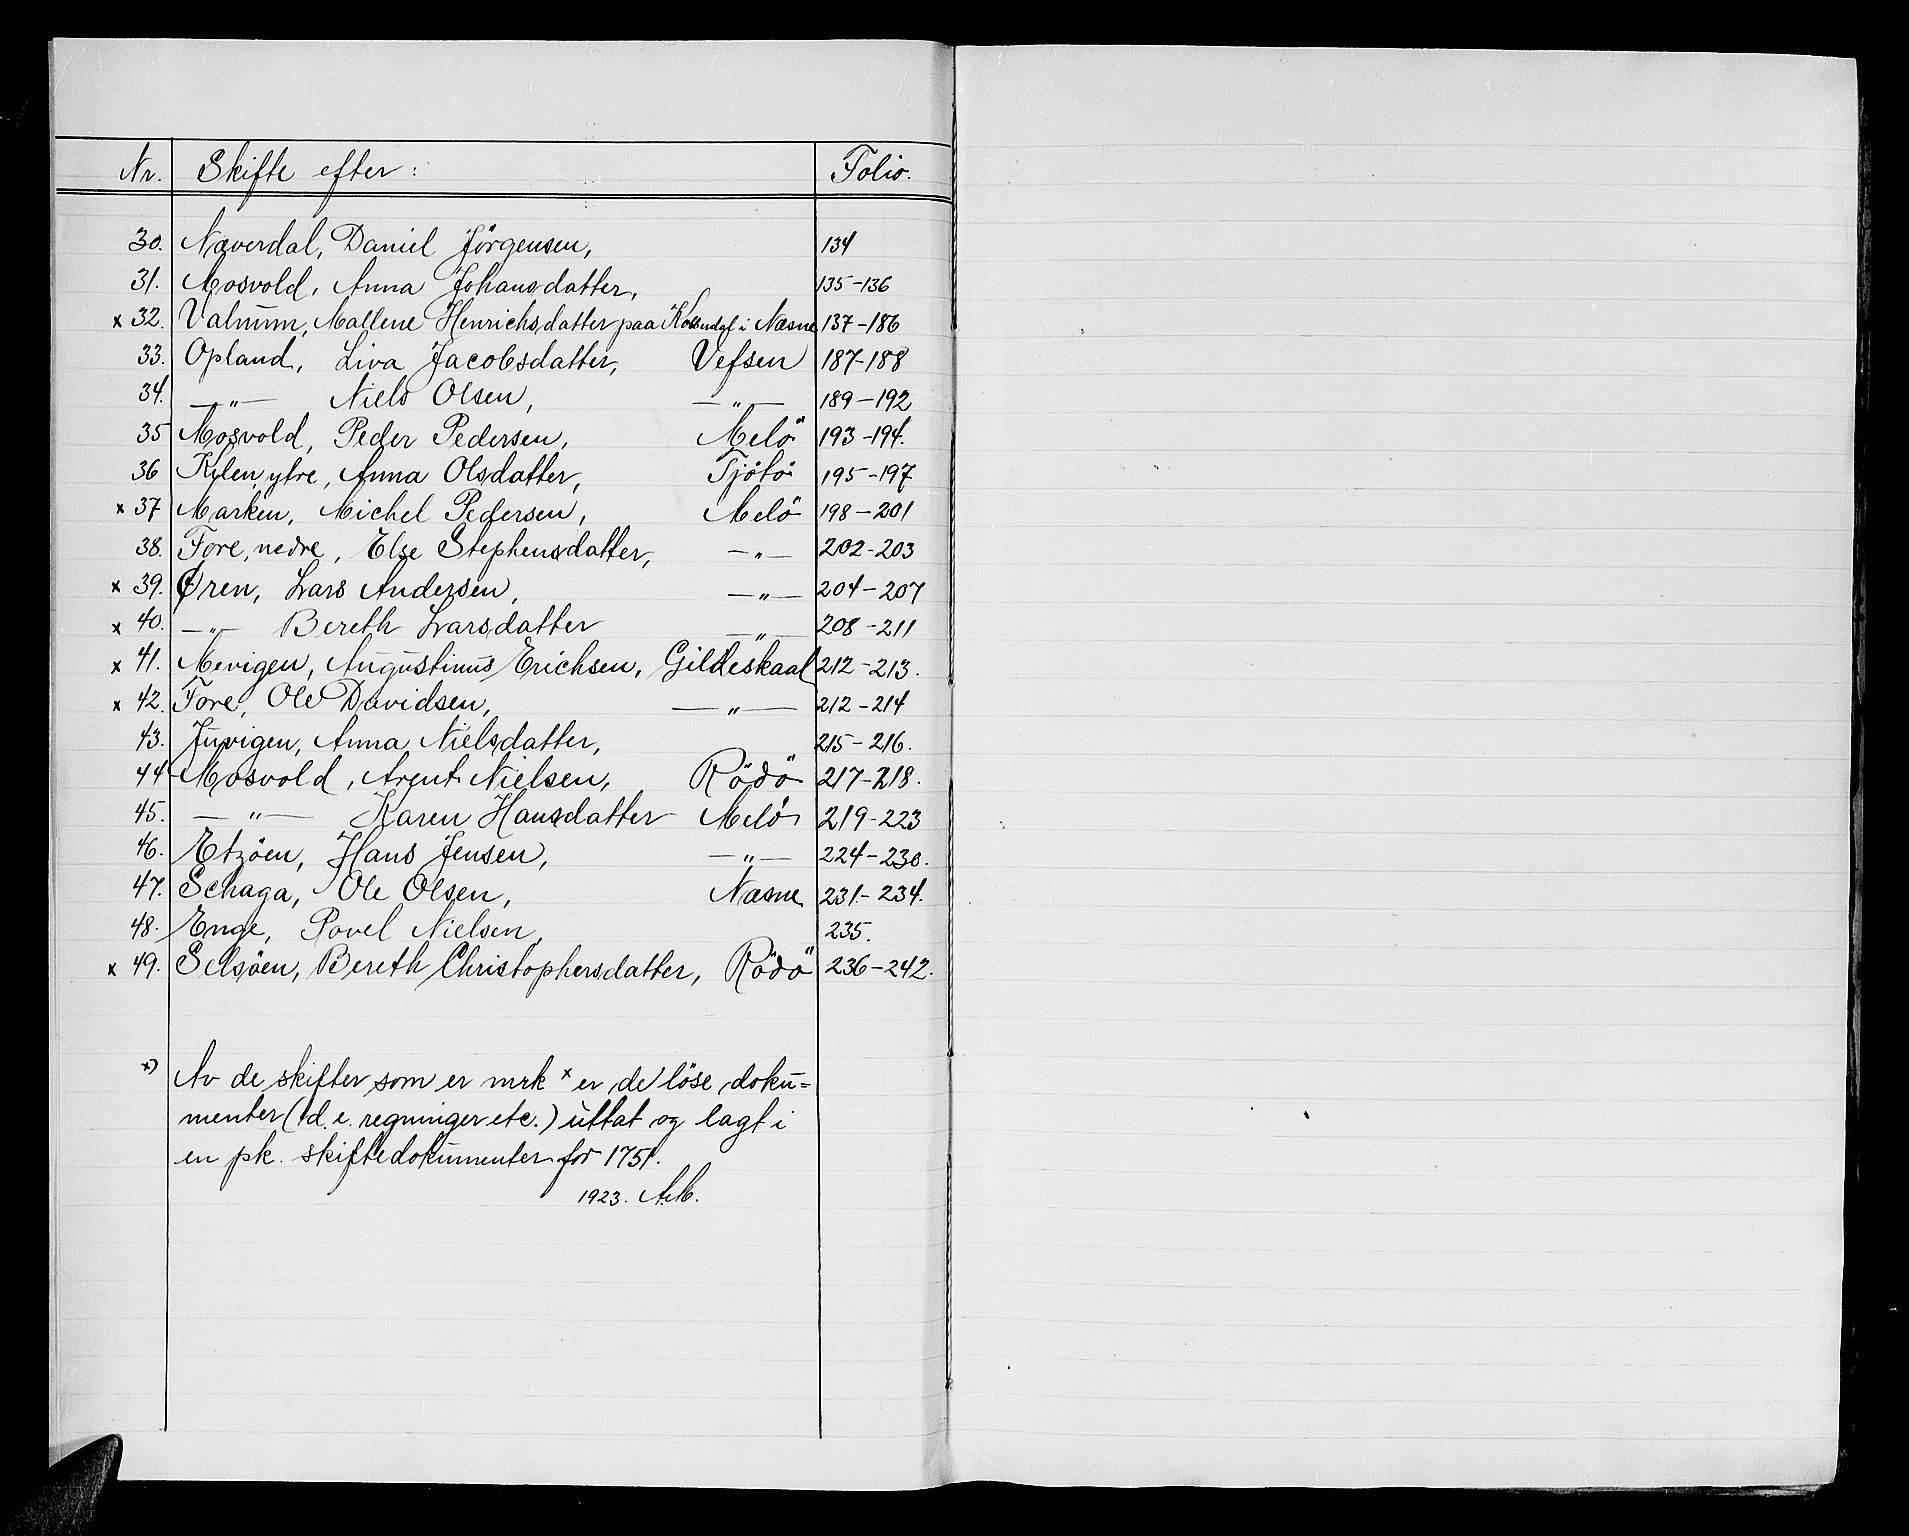 Nr. Skifte efter: Folio.
30. Næverdal, Daniel Jörgensen, 134
31. Mosvold, Anna Johansdatter, 135-136
x 32. Valnum, Mallene Henrichsdatter paa i Næsne 137-186
33. Opland, Liva Jacobsdatter, Vefsen 187-188
34. —„— Niels Olsen, —„— 189-192
35 Mosvold, Peder Pedersen, Melö 193-194.
36 Kylen, ytre, Anna Olsdatter, Tjötö 195-197
x 37 Marken, Michel Pedersen, Melö 198-201
38. Fore, nedre, Else Stephensdatter, —„— 202-203
x 39. Øren, Lars Andersen, —„— 204-207
x 40. —„— Bereth Larsdatter —„— 208-211
x 41. Mevigen, Augustinus Erichsen, Gildeskaal 212-213.
x 42. Fore, Ole Davidsen, —„— 212-214
43. Juvigen, Anna Nielsdatter, 215-216.
44 Mosvold, Arent Nielsen, Rödö 217-218.
45. —„— Karen Hansdatter Melö 219-223
46. Etzöen, Hans Jensen, —„— 224-230.
47. Schaga, Ole Olsen, Næsne 231-234.
48. Enge, Povel Nielsen, 235.
x 49. Selsöen, Bereth Christophersdatter, Rödö 236-242.
x) Av de skifter som er mrk x er de löse doku=
menter (d. e. regninger etc.) uttat og lagt i
en pk. skiftedokumenter for 1751.
1923. A.M.